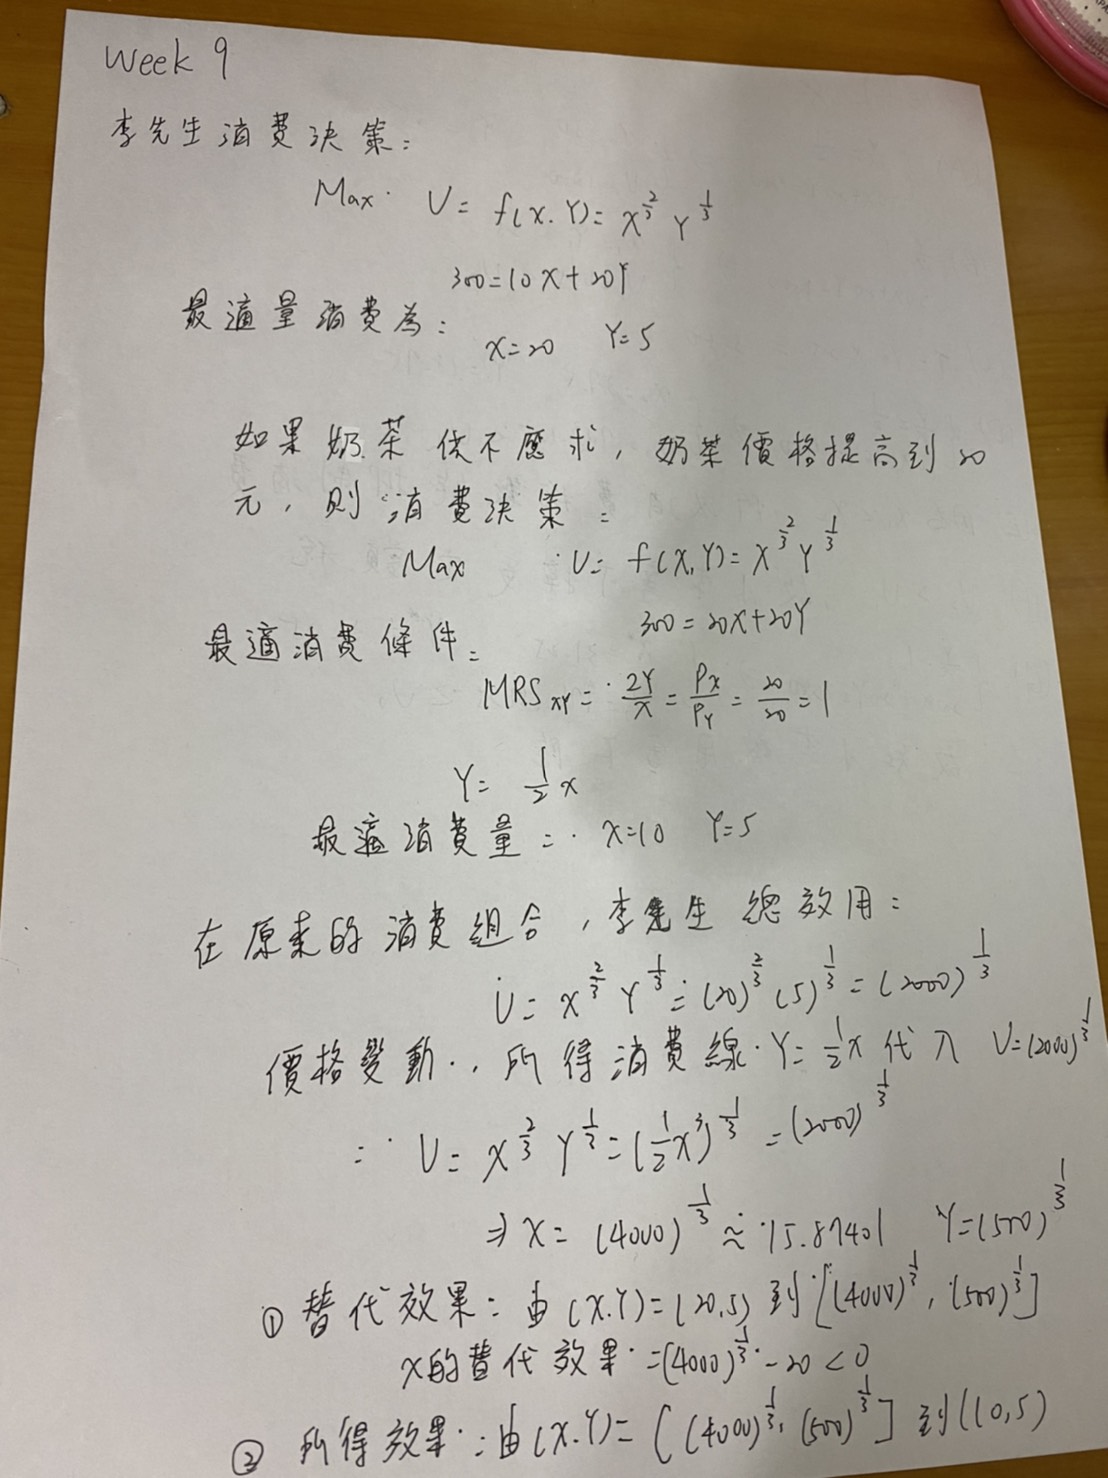 Week 9
李先生消費決策:
Max. U= f(X.Y)= X^(2/3) Y^(1/3)
300=10X+20Y
最適量消費為:
X=20 Y=5
如果奶茶供不應求,奶茶價格提高到20
元,則消費決策:
Max U= f(X,Y)= X^(2/3) Y^(1/3)
300=20X+20Y
最適消費條件:
MRS_XY = 2Y/X = P_X/P_Y = 20/20 = 1
Y= 1/2 X
最適消費量: X=10 Y=5
在原來的消費組合,李先生總效用:
U= X^(2/3) Y^(1/3) = (20)^(2/3) (5)^(1/3) = (2000)^(1/3)
價格變動,所得消費線 Y= 1/2 X 代入 U=(2000)^(1/3)
: U= X^(2/3) Y^(1/3) = (1/2 X^3)^(1/3) = (2000)^(1/3)
⇒ X= (4000)^(1/3) ≈ 15.87401 Y=(500)^(1/3)
① 替代效果: 由(X.Y)=(20,5) 到[(4000)^(1/3), (500)^(1/3)]
X的替代效果=(4000)^(1/3) - 20 < 0
② 所得效果: 由(X.Y)= [(4000)^(1/3), (500)^(1/3)] 到(10,5)